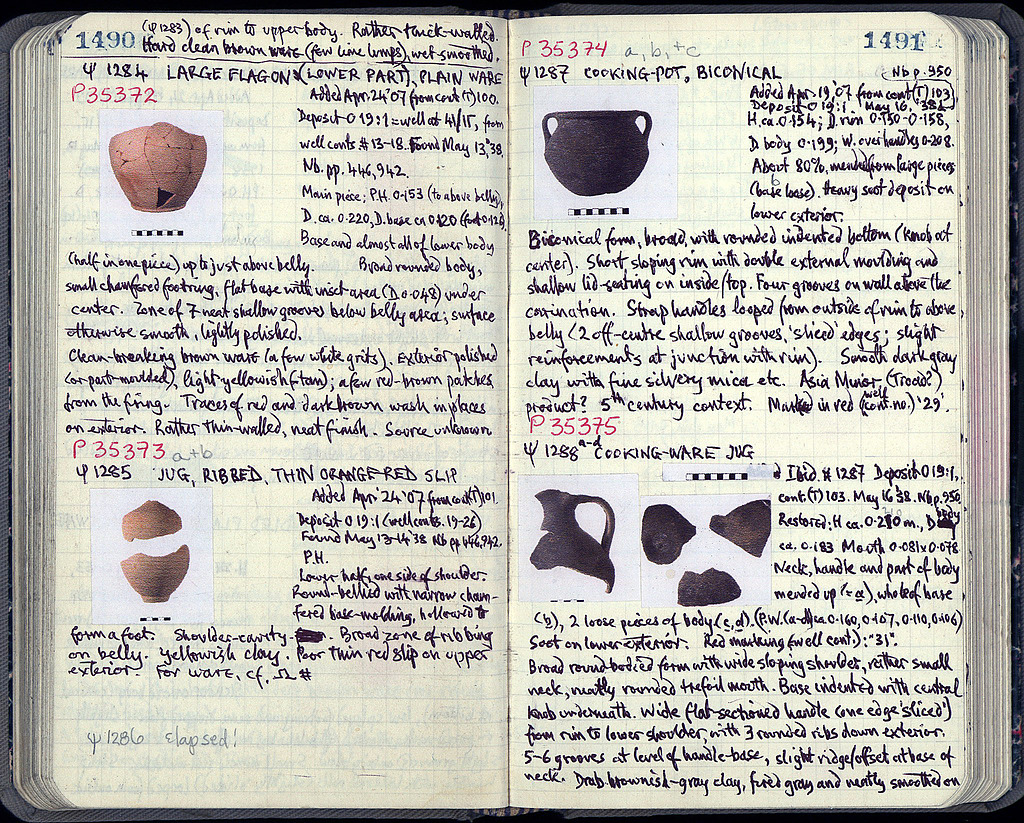 1490
(Ψ 1283) of rim to upper body. Rather thick-walled.
Hard clean brown ware (few lime lumps), wet-smoothed.
Ψ 1284 LARGE FLAGON (LOWER PART), PLAIN WARE
P 35372
Added Apr. 24 '07 from cont (T) 100.
Deposit O 19:1 = well at 41/ΙΓ, from
well conts # 13-18. Found May 13, '38.
Nb. pp. 446, 942.
Main piece; P.H. 0.153 (to above belly),
D. ca. 0.220, D. base ca 0.120 (foot 0.126).
Base and almost all of lower body
(half in one piece) up to just above belly. Broad rounded body,
small chamfered footring, flat base with inset area (D 0.048) under
center. Zone of 7 neat shallow grooves below belly area; surface
otherwise smooth, lightly polished.
Clean-breaking brown ware (a few white grits). Exterior polished
(or part-moulded), light yellowish (tan); a few red-brown patches
from the firing. Traces of red and dark brown wash in places
on exterior. Rather thin-walled, neat finish. Source unknown
P 35373 a+b
Ψ 1285 JUG, RIBBED, THIN ORANGE-RED SLIP
Added Apr. 24 '07 from cont (T) 101.
Deposit O 19:1 (well conts. 19-26)
Found May 13-14 '38 Nb pp 446, 942.
P.H.
Lower half, one side of shoulder.
Round-bellied with narrow cham-
fered base-molding, hollowed to
form a foot. Shoulder-cavity. Broad zone of ribbing
on belly. Yellowish clay. Poor thin red slip on upper
exterior. For ware, cf. Ω #
Ψ 1286 Elapsed!
1491
P 35374 a, b, + c
Ψ 1287 COOKING-POT, BICONICAL
Nb p. 950
Added Apr. 19, '07 from cont (T) 103)
Deposit O 19:1. May 16, '38
H. ca 0.154; D. rim 0.150-0.158,
D body 0.199; W. over handles 0.208.
About 80%, mended from large pieces
(base loose) Heavy soot deposit on
lower exterior.
Biconical form, broad, with rounded indented bottom (knob at
center). Short sloping rim with double external moulding and
shallow lid-seating on inside/top. Four grooves on wall above the
carination. Strap handles looped from outside of rim to above
belly (2 off-centre shallow grooves, 'sliced' edges; slight
reinforcements at junction with rim). Smooth dark gray
clay with fine silvery mica etc. Asia Minor, (Troad?)
product? 5th century context. Marked in red (well cont. no.) '29'.
P 35375
Ψ 1288 a-d COOKING-WARE JUG
Ibid. # 1287 Deposit O 19:1,
cont. (T) 103. May 16 '38. Nb p. 950
Restored: H ca. 0.210 m., D body
ca. 0.183 Mouth 0.081 x 0.078
Neck, handle and part of body
mended up (= a), whole of base
(b), 2 loose pieces of body (c, d). (P.W. (a-d) ca 0.160, 0.107, 0.110, 0.106)
Soot on lower exterior. Red marking (well cont): "31".
Broad round-bodied form with wide sloping shoulder, rather small
neck, neatly rounded trefoil mouth. Base indented with central
knob underneath. Wide flat-sectioned handle (one edge 'sliced')
from rim to lower shoulder, with 3 rounded ribs down exterior.
5-6 grooves at level of handle-base, slight ridge/offset at base of
neck. Drab brownish-gray clay, fired gray and neatly smoothed on